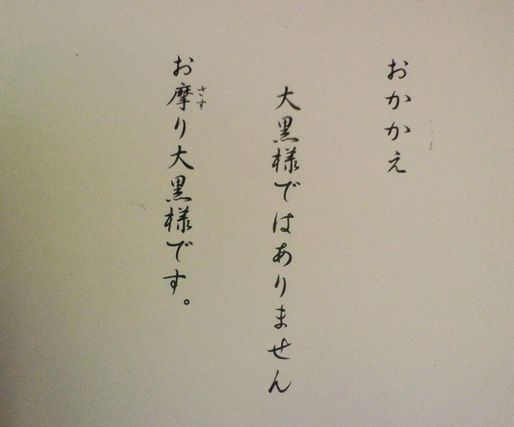 おかかえ
大黒様ではありません
お摩り大黒様です。
さす